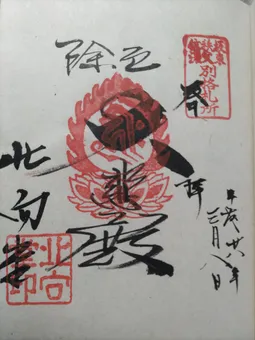 奉拝
平成廿八年
三月八日
別格札所
厄除
大悲殿
北向
北向